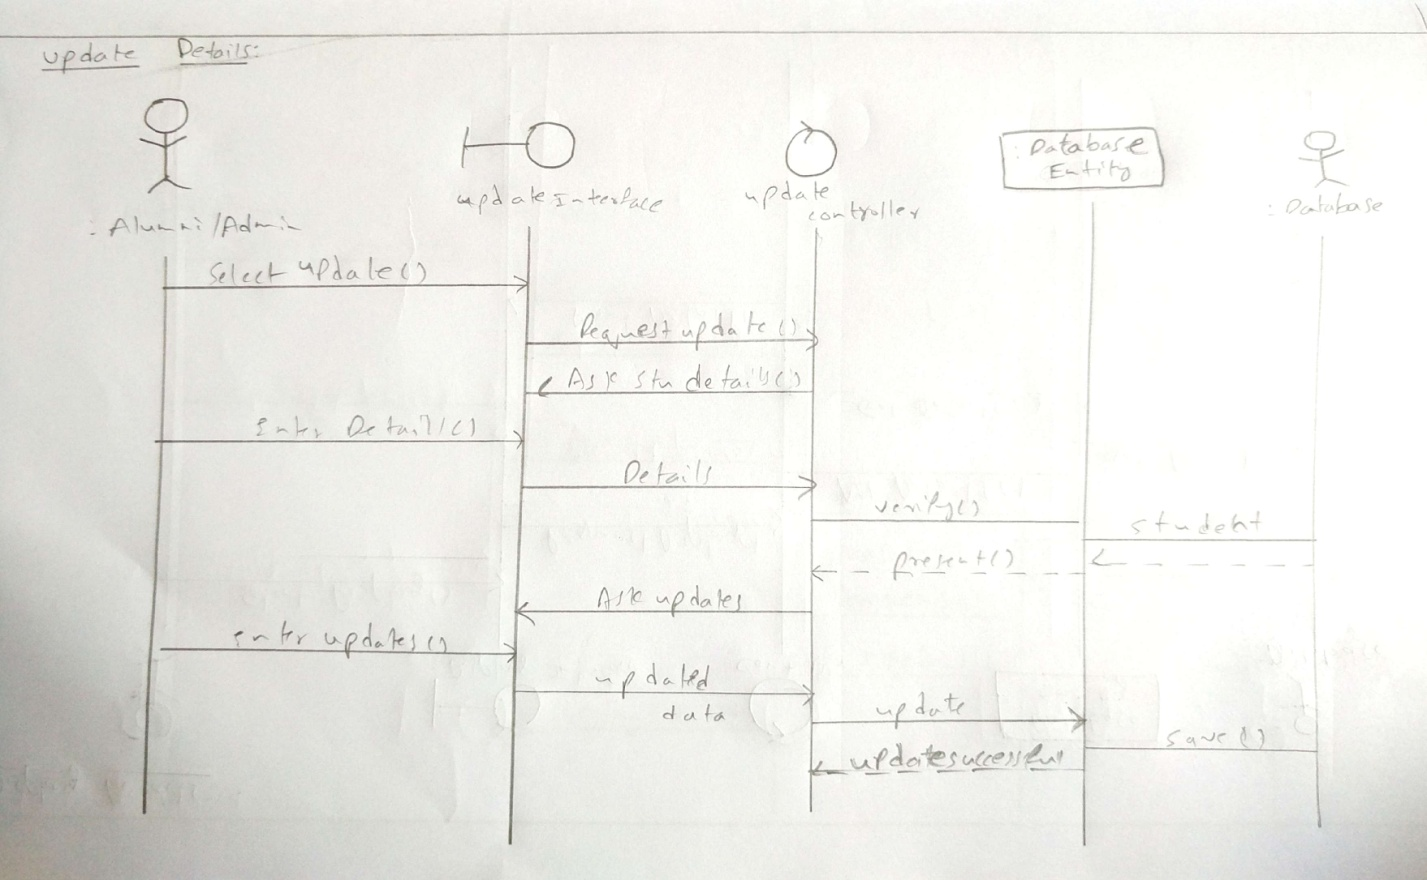 update Details:
: Alumni/Admin
update Interface
update
controller
: Database
Entity
: Database
Select update()
Request update()
Ask stu details()
Enter Details()
Details
verify()
student
present()
Ask updates
enter updates()
updated
data
update
save()
updatesuccessful